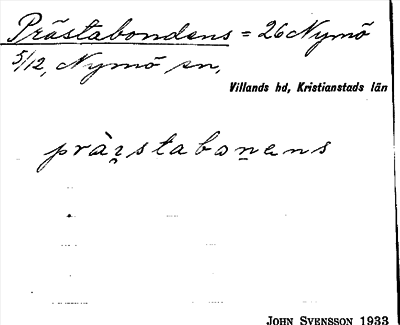 Prästabondens = 26 Nymö
5/12, Nymö sn,
Villands hd, Kristianstads län
pràr̥stabon̥ens
JOHN SVENSSON 1933